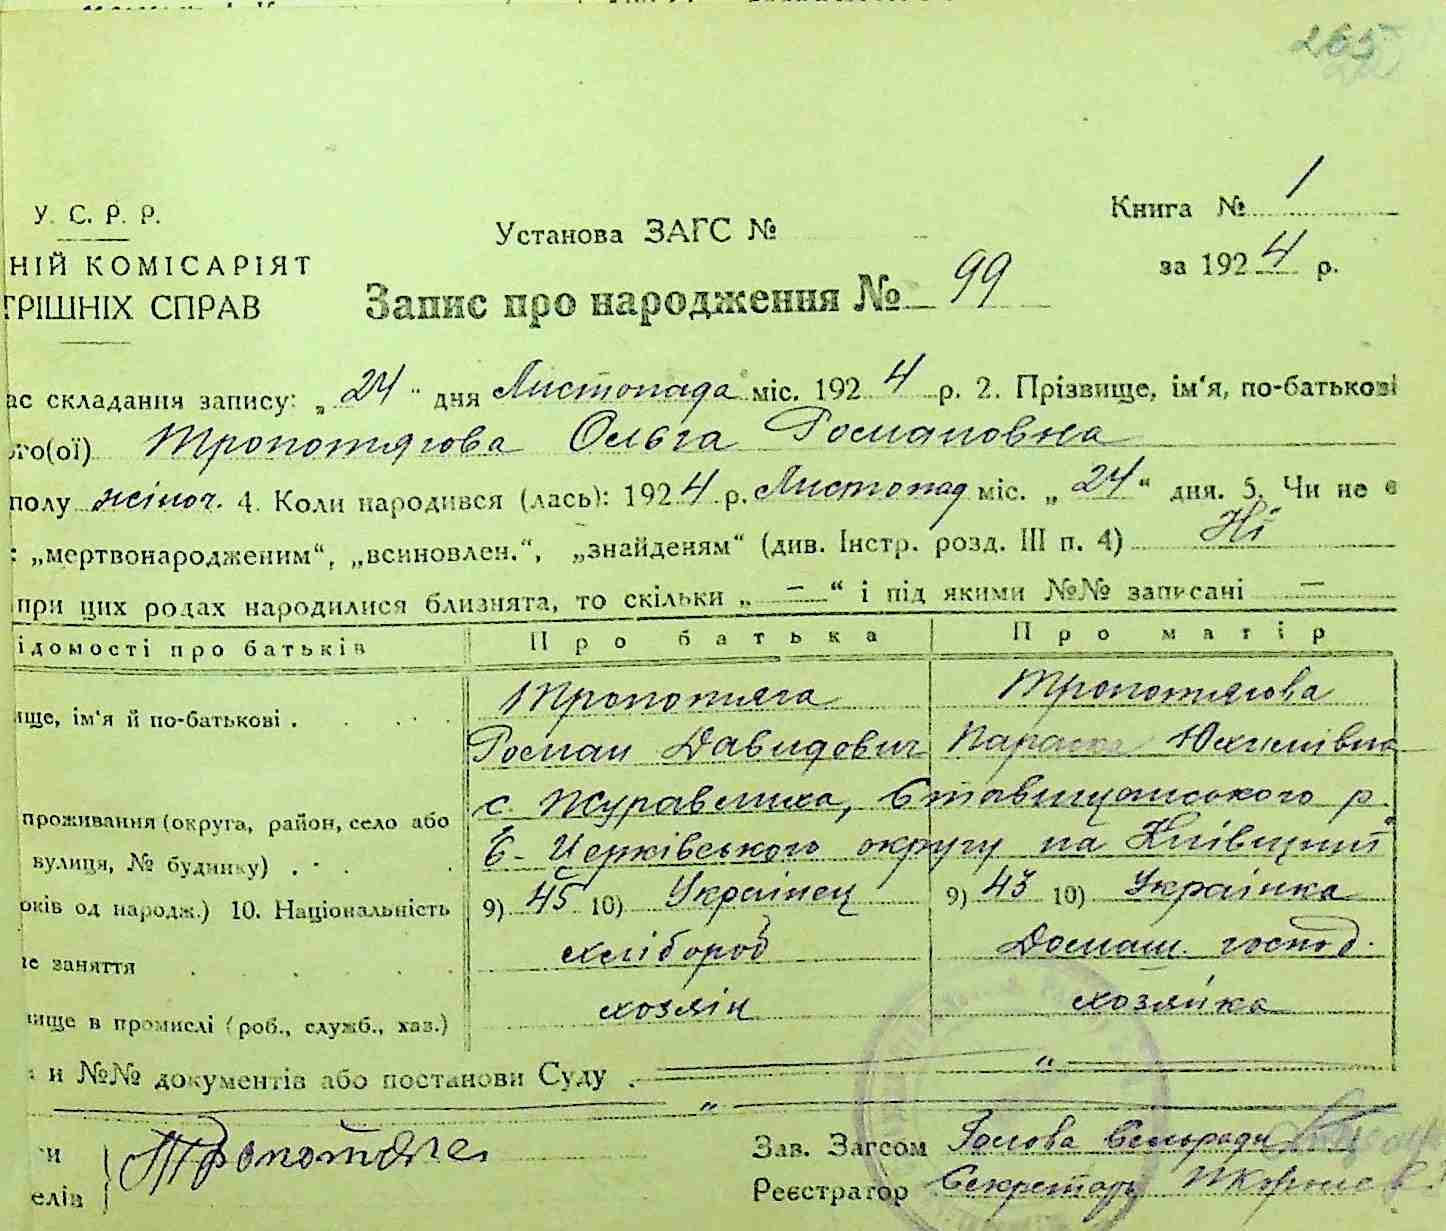 265
У. С. Р. Р.
НІЙ КОМІСАРІЯТ
ТРІШНІХ СПРАВ
Установа ЗАГС №
Книга № 1
за 1924 р.
Запис про народження № 99
ас складання запису: „24" дня Листопада міс. 1924 р. 2. Прізвище, ім'я, по-батькові
ого(ої) Тропотягова Ольга Романовна
полу жіноч. 4. Коли народився (лась): 1924 р. Листопад міс. „24" дня. 5. Чи не є
: „мертвонародженим", „всиновлен.", „знайденям" (див. Інстр. розд. III п. 4) Ні
при цих родах народилися близнята, то скільки „—" і під якими №№ записані —
ідомості про батьків Про батька Про матір
ище, ім'я й по-батькові . Тропотяга Тропотягова
Роман Давидович Параска Юхимівна
с. Журавлиха, Ставищанського р.
проживання (округа, район, село або
вулиця, № будинку) . Б-Церківського округу на Київщині
оків од народж.) 10. Національність 9) 45 10) Українец 9) 43 10) Українка
не заняття хлібороб Домаш. господ.
вище в промислі (роб., служб., хаз.) хозяін хозяйка
и №№ документів або постанови Суду . "
"
Тропотяга
Зав. Загсом Голова Сельради
елів Реєстратор Секретарь